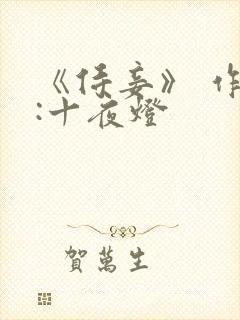 《侍妾》 作
:十夜燈
賀萬生